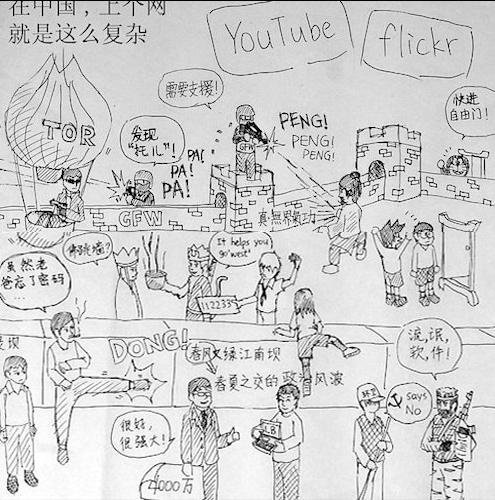 在中国,上个网
就是这么复杂
YouTube
flickr
需要支援!
快进
自由门!
TOR
发现
"托儿"!
PA!
PA!
PA!
GFW
PENG!
PENG!
PENG!
GFW
真無界氣功
佛跳墙?
It helps you
go west!
虽然老
爸忘了密码
...
112233
DONG!
春风又绿江南坝
春夏之交的政治风波
流氓
软件!
很好,
很强大!
4000万
环卫
says
No